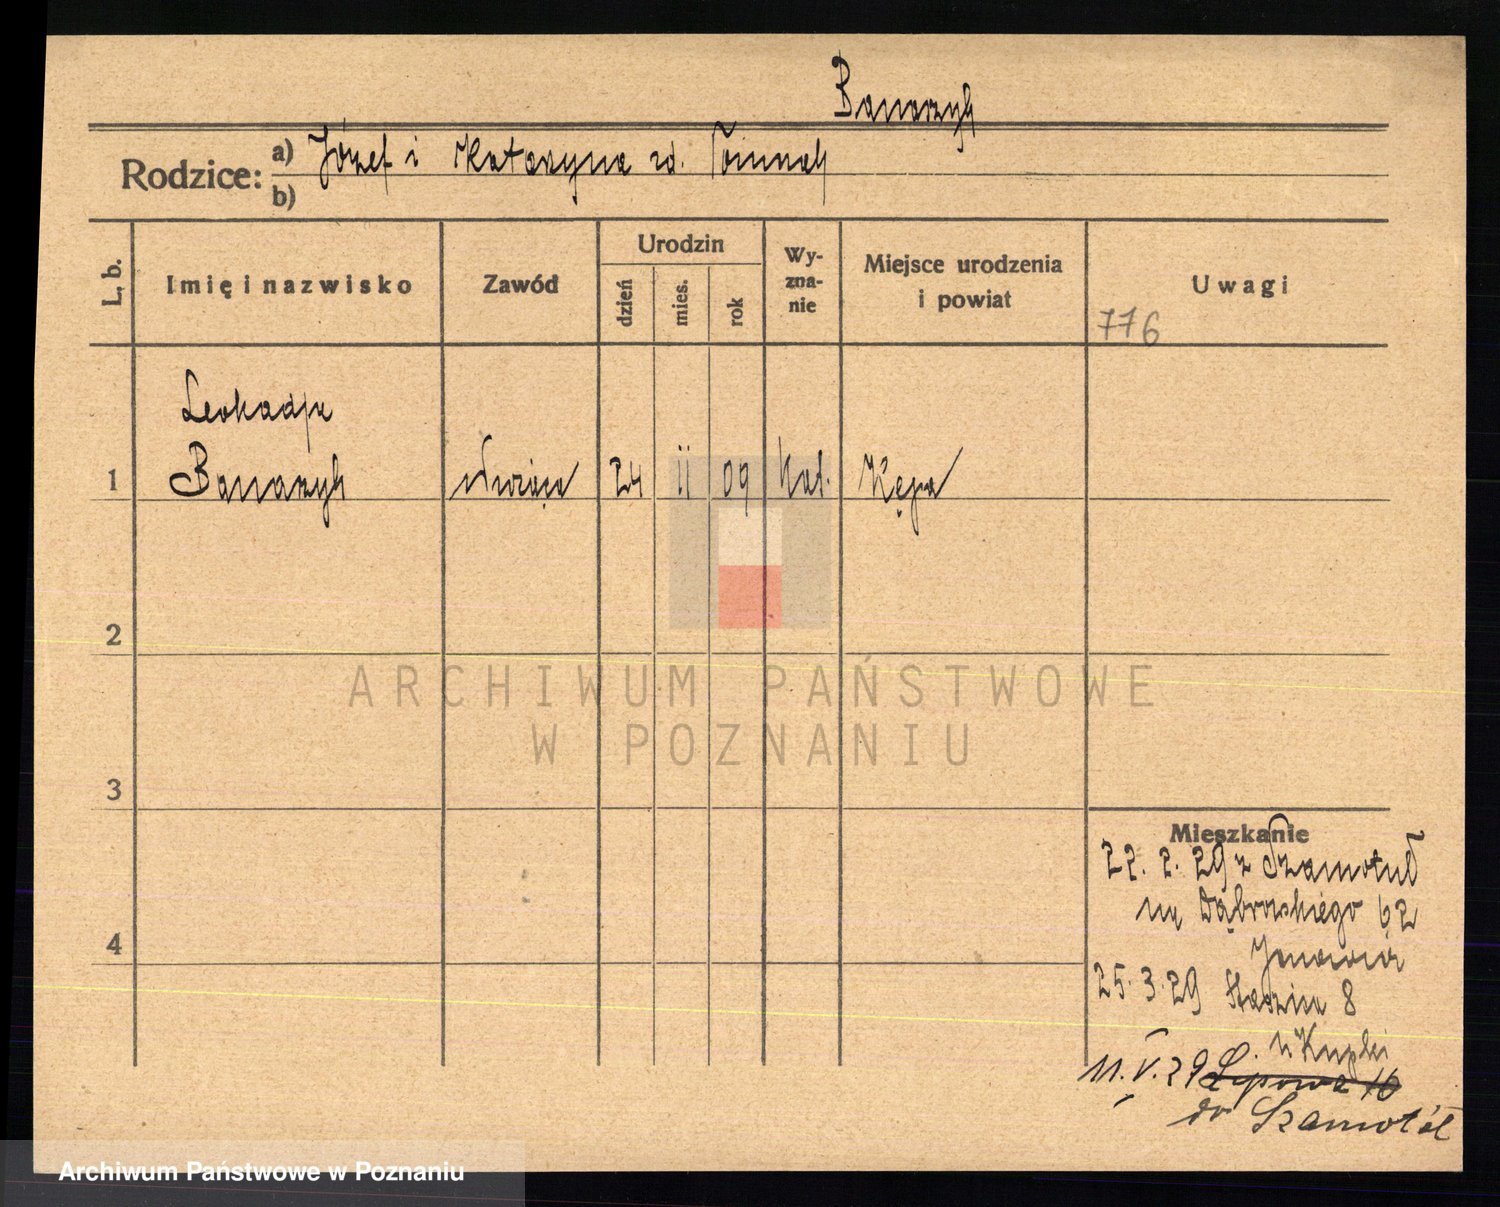 Banaszyk
Rodzice: a) Józef i Katarzyna zd. Tomiak
b)
L. b. Imię i nazwisko Zawód Urodzin dzień mies. rok Wyznanie Miejsce urodzenia i powiat Uwagi
776
Leokadja
1 Banaszyk służąca 24 II 09 Kat. Kępa
2
ARCHIWUM PAŃSTWOWE
W POZNANIU
3
Mieszkanie
22. 2. 29 z Szamotuł
na Dąbrowskiego 62
4
25. 3. 29 8
11. V. 29 Lipowa 10
do Szamotuł
Archiwum Państwowe w Poznaniu